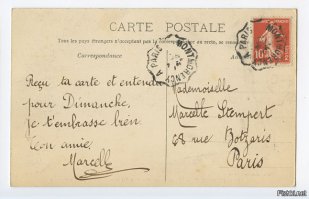 CARTE POSTALE
Tous les pays étrangers n'acceptent pas la correspondance au recto
Correspondance
A PARIS
MONT
A PARIS
MON
10
Reçu ta carte et entendu
pour Dimanche,
je t'embrasse bien
Ton amie,
Marcelle
Mademoiselle
Marcelle Stempert
68 rue Botzaris
Paris
Fishki.net